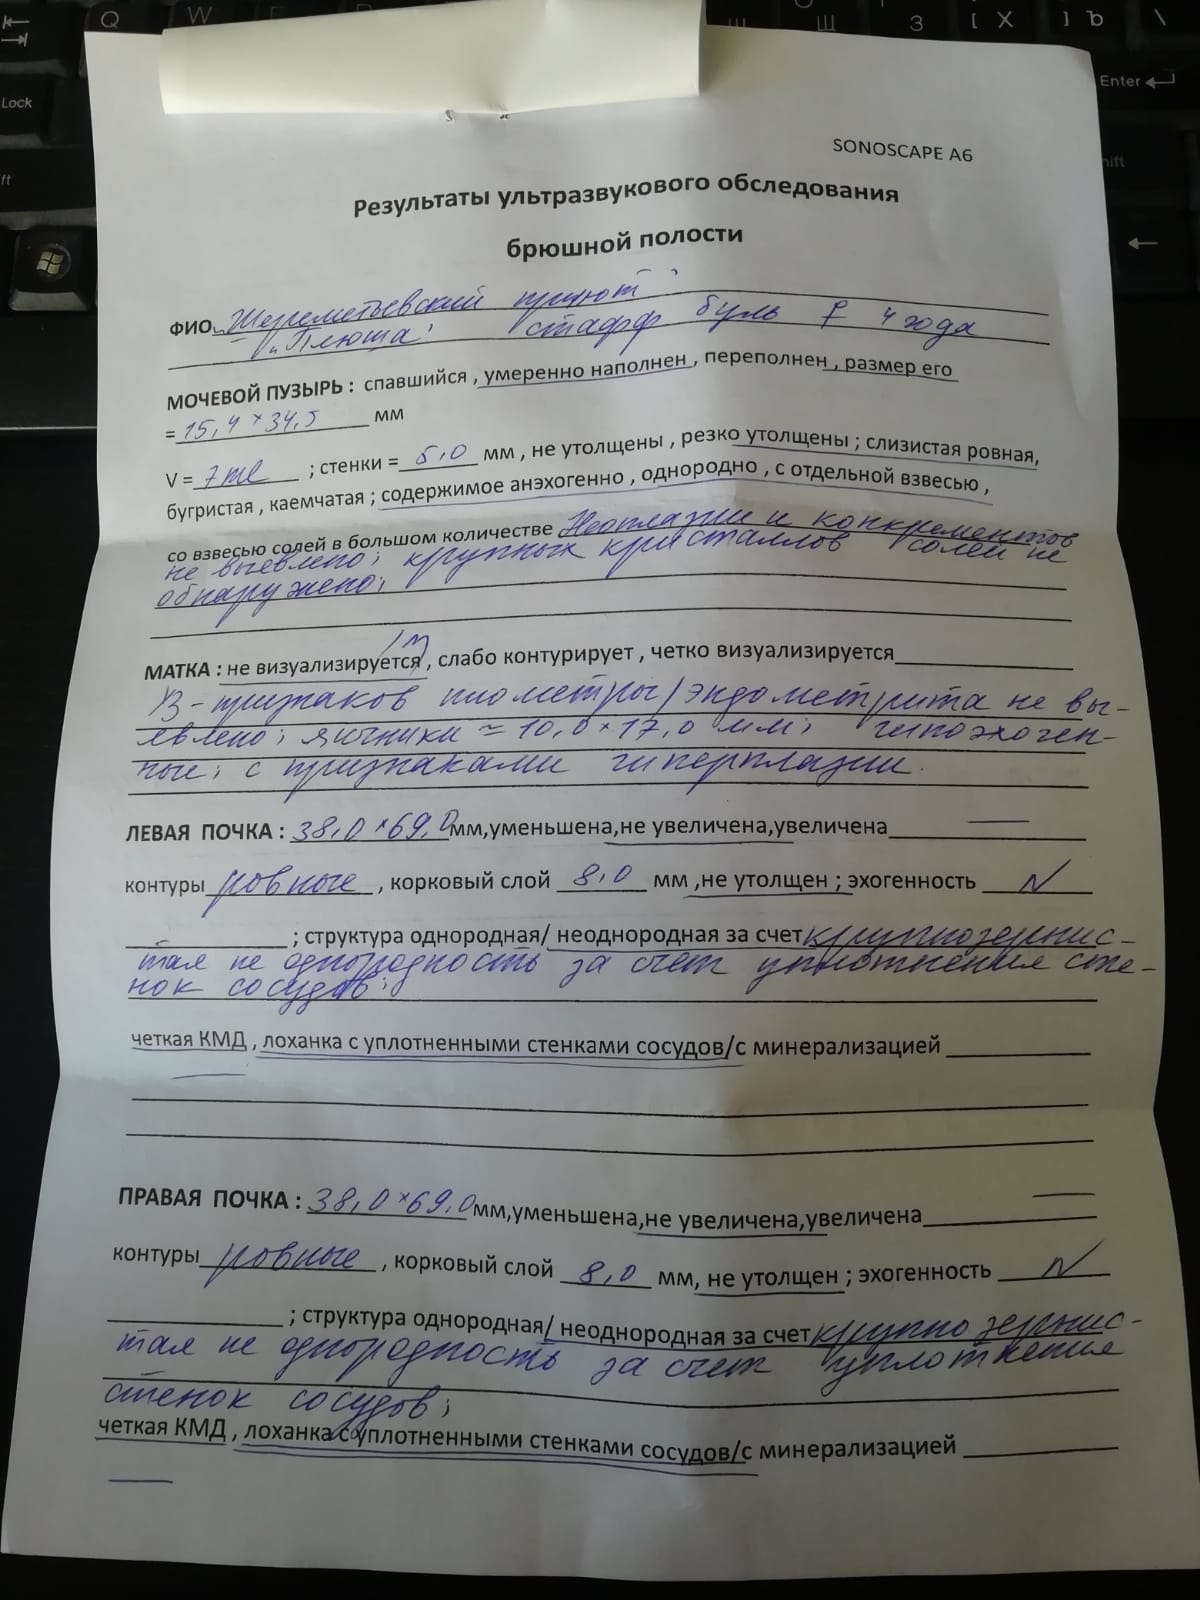 SONOSCAPE A6
Результаты ультразвукового обследования
брюшной полости
ФИО „Шереметьевский приют"
„Плюша" стафф буль ♀ 4 года
МОЧЕВОЙ ПУЗЫРЬ : спавшийся , умеренно наполнен , переполнен , размер его
= 15,4 × 34,5 мм
V = 7 ml ; стенки = 5,0 мм , не утолщены , резко утолщены ; слизистая ровная,
бугристая , каемчатая ; содержимое анэхогенно , однородно , с отдельной взвесью ,
со взвесью солей в большом количестве Неоплазии и конкрементов
не выявлено; крупных кристаллов солей не
обнаружено;
МАТКА : не визуализируется , слабо контурирует , четко визуализируется
УЗ-признаков пиометры/эндометрита не вы-
явлено; яичники ≈ 10,0 × 17,0 мм; гипоэхоген-
ные; с признаками гиперплазии.
ЛЕВАЯ ПОЧКА : 38,0 × 69,0 мм,уменьшена,не увеличена,увеличена
контуры ровные , корковый слой 8,0 мм ,не утолщен ; эхогенность N
; структура однородная/ неоднородная за счет крупнозернис-
тая не однородность за счет уплотнения сте-
нок сосудов;
четкая КМД , лоханка с уплотненными стенками сосудов/с минерализацией
ПРАВАЯ ПОЧКА : 38,0 × 69,0 мм,уменьшена,не увеличена,увеличена
контуры ровные , корковый слой 8,0 мм, не утолщен ; эхогенность N
; структура однородная/ неоднородная за счет крупнозернис-
тая не однородность за счет уплотнения
стенок сосудов;
четкая КМД , лоханка с уплотненными стенками сосудов/с минерализацией